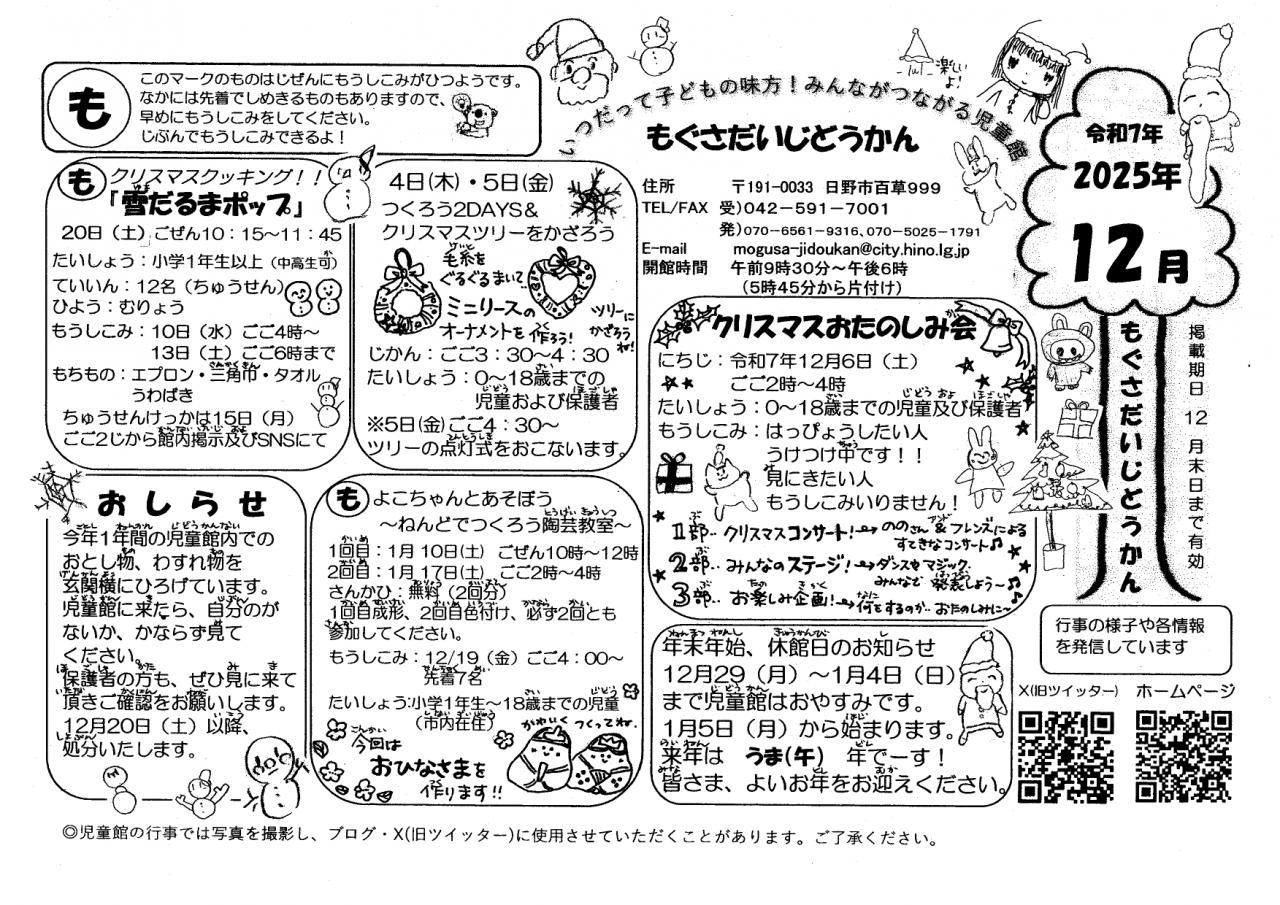 いつだって子どもの味方！みんながつながる児童館
もぐさだいじどうかん
楽しいよ！
令和7年
2025年
12月
もぐさだいじどうかん
掲載期日 12月末日まで有効
住所 〒191-0033 日野市百草999
TEL/FAX 受)042-591-7001
発)070-6561-9316、070-5025-1791
E-mail mogusa-jidoukan@city.hino.lg.jp
開館時間 午前9時30分～午後6時
(5時45分から片付け)
も
このマークのものはじぜんにもうしこみがひつようです。
なかには先着でしめきるものもありますので、
早めにもうしこみをしてください。
じぶんでもうしこみできるよ！
も クリスマスクッキング！！
「雪だるまポップ」
20日（土）ごぜん10：15～11：45
たいしょう：小学1年生以上（中高生可）
ていいん：12名（ちゅうせん）
ひよう：むりょう
もうしこみ：10日（水）ごご4時～
13日（土）ごご6時まで
もちもの：エプロン・三角巾・タオル
うわばき
ちゅうせんけっかは15日（月）
ごご2じから館内掲示及びSNSにて
4日(木)・5日(金)
つくろう2DAYS＆
クリスマスツリーをかざろう
毛糸を
ぐるぐるまいて、
ミニリースの
オーナメントを作ろう！
ツリーに
かざろうね！
じかん：ごご3：30～4：30
たいしょう：0～18歳までの
児童および保護者
※5日(金)ごご4：30～
ツリーの点灯式をおこないます。
クリスマスおたのしみ会
にちじ：令和7年12月6日（土）
ごご2時～4時
たいしょう：0～18歳までの児童及び保護者
もうしこみ：はっぴょうしたい人
うけつけ中です！！
見にきたい人
もうしこみいりません！
1部‥クリスマスコンサート！→ののさん&フレンズによる
すてきなコンサート♫
2部‥みんなのステージ！→ダンスやマジック、
みんなで発表しよう～♫
3部‥お楽しみ企画！→何をするのか‥おたのしみに～♪
おしらせ
今年1年間の児童館内での
おとし物、わすれ物を
玄関横にひろげています。
児童館に来たら、自分のが
ないか、かならず見て
ください。
保護者の方も、ぜひ見に来て
頂きご確認をお願いします。
12月20日（土）以降、
処分いたします。
も よこちゃんとあそぼう
～ねんどでつくろう陶芸教室～
1回目：1月10日(土) ごぜん10時～12時
2回目：1月17日(土) ごご2時～4時
さんかひ：無料（2回分）
1回目成形、2回目色付け、必ず2回とも
参加してください。
もうしこみ：12/19（金）ごご4：00～
先着7名
たいしょう:小学1年生～18歳までの児童
（市内在住）
かわいくつくってね。
今回は
おひなさまを
作ります!!
年末年始、休館日のお知らせ
12月29（月）～1月4日（日）
まで児童館はおやすみです。
1月5日（月）から始まります。
来年は うま(午) 年でーす！
皆さま、よいお年をお迎えください。
行事の様子や各情報
を発信しています
X(旧ツイッター) ホームページ
◎児童館の行事では写真を撮影し、ブログ・X(旧ツイッター)に使用させていただくことがあります。ご了承ください。